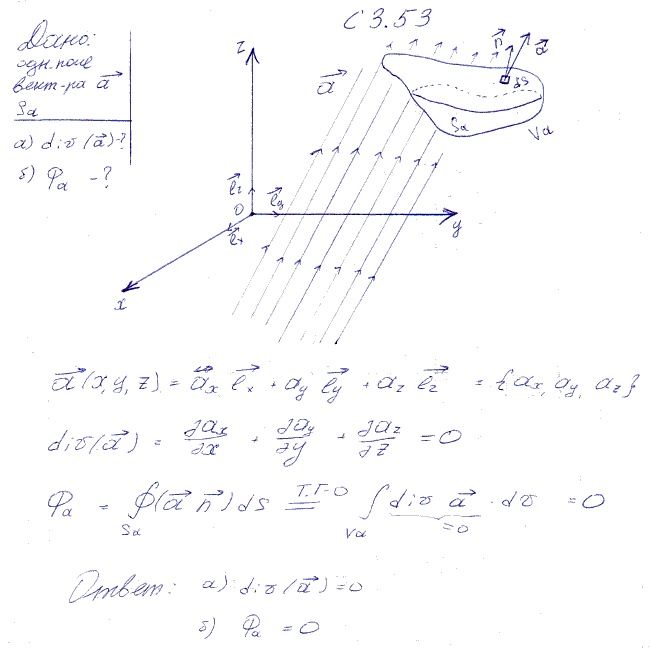 С 3.53
Дано:
одн. поле
вект-ра a⃗
Sa
а) div (a⃗) - ?
б) Φa - ?
z
y
x
0
e⃗z
e⃗y
e⃗x
a⃗
n⃗ a⃗
dS
Sa
Va
a⃗ (x, y, z) = a⃗x e⃗x + ay e⃗y + az e⃗z = {ax, ay, az}
div (a⃗) = ∂ax/∂x + ∂ay/∂y + ∂az/∂z = 0
Φa = ∮Sa (a⃗ n⃗) dS =Т.Г-О= ∫Va div a⃗ · dv = 0
= 0
Ответ: а) div (a⃗) = 0
б) Φa = 0